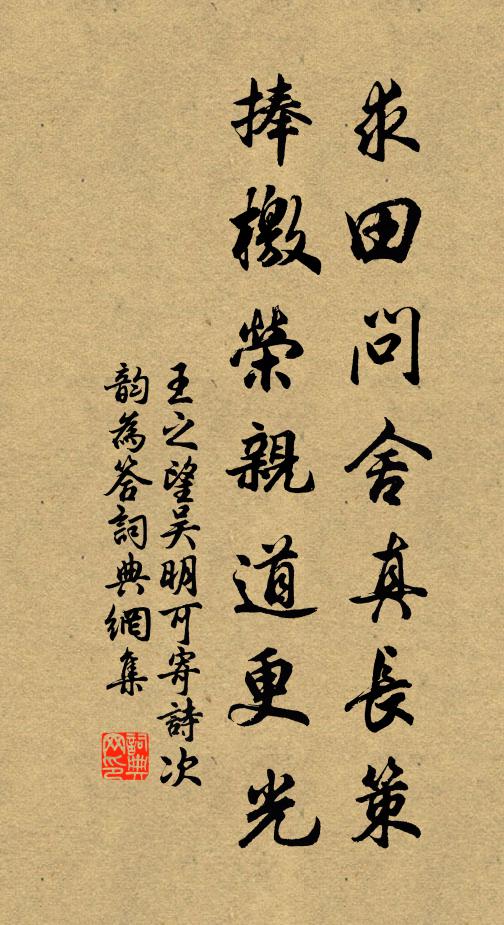 求田問舍真長策
捧檄榮親道更光
王之望吳明可寄詩次
韵為答詞典網集
詞典
网印